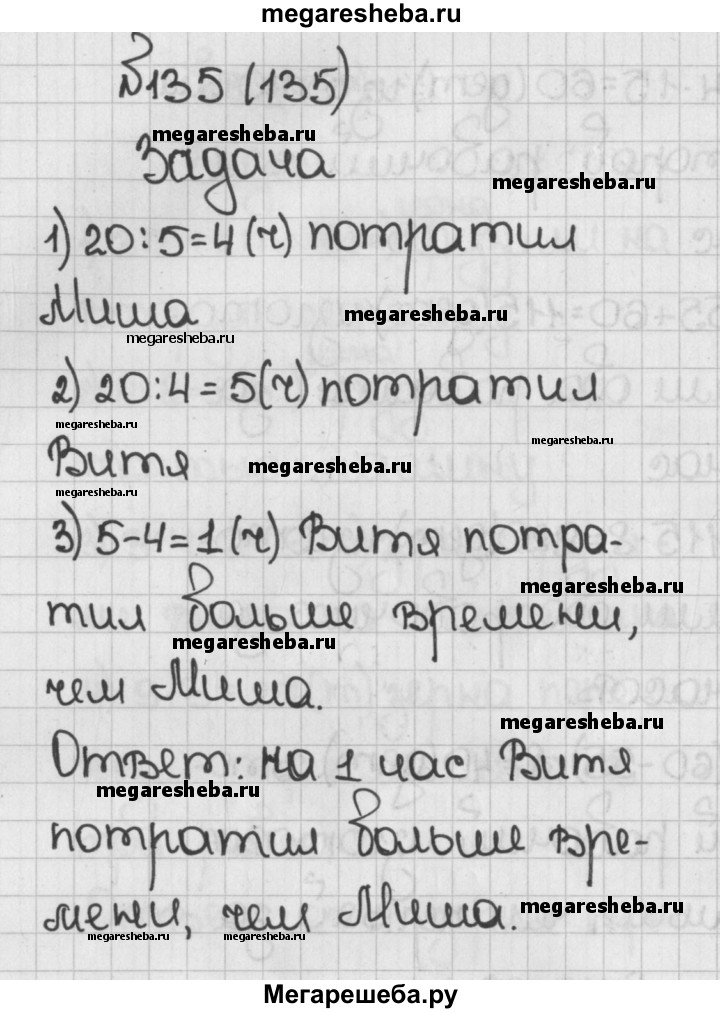 megaresheba.ru
№135 (135)
megaresheba.ru
Задача
megaresheba.ru
1) 20:5=4 (ч) потратил
Миша
megaresheba.ru
megaresheba.ru
2) 20:4=5(ч) потратил
megaresheba.ru
megaresheba.ru
Витя
megaresheba.ru
megaresheba.ru
3) 5-4=1 (ч) Витя потра-
megaresheba.ru
тил больше времени,
megaresheba.ru
чем Миша.
megaresheba.ru
Ответ: на 1 час Витя
megaresheba.ru
потратил больше вре-
мени, чем Миша.
megaresheba.ru
megaresheba.ru
megaresheba.ru
Мегарешеба.ру